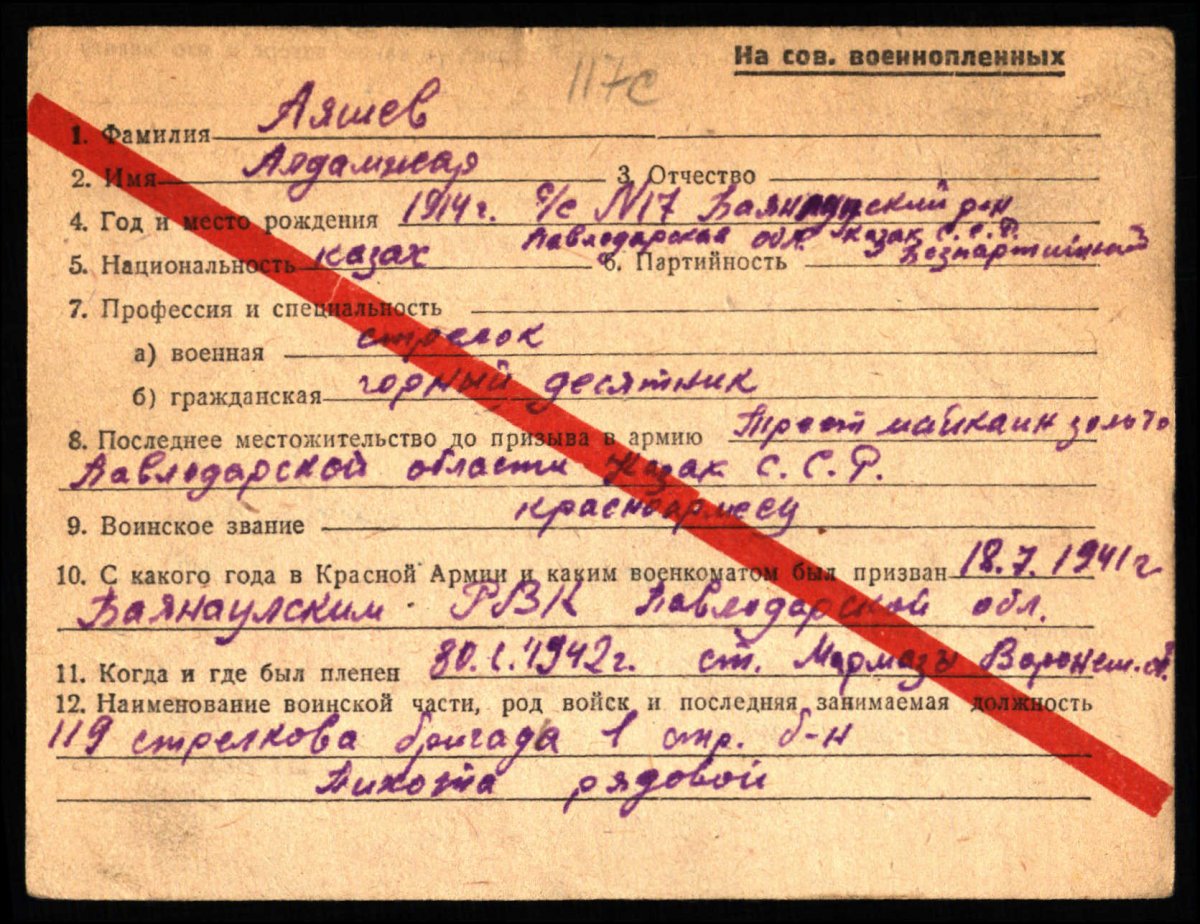 На сов. военнопленных
117с
1. Фамилия Аяшев
2. Имя Алдамжар 3. Отчество
4. Год и место рождения 1914 г. с/с N17 Баянаулский р-он
Павлодарская обл. Казак С.С.Р.
5. Национальность казах 6. Партийность Безпартийный
7. Профессия и специальность
а) военная стрелок
б) гражданская горный десятник
8. Последнее местожительство до призыва в армию Трест майкаин золото
Павлодарской области Казак С.С.Р.
9. Воинское звание красноармеец
10. С какого года в Красной Армии и каким военкоматом был призван 18.7.1941 г
Баянаулским РВК Павлодарской обл.
11. Когда и где был пленен 1942 г. ст.
12. Наименование воинской части, род войск и последняя занимаемая должность
119 стрелкова бригада 1 стр. б-н
Пихота рядовой